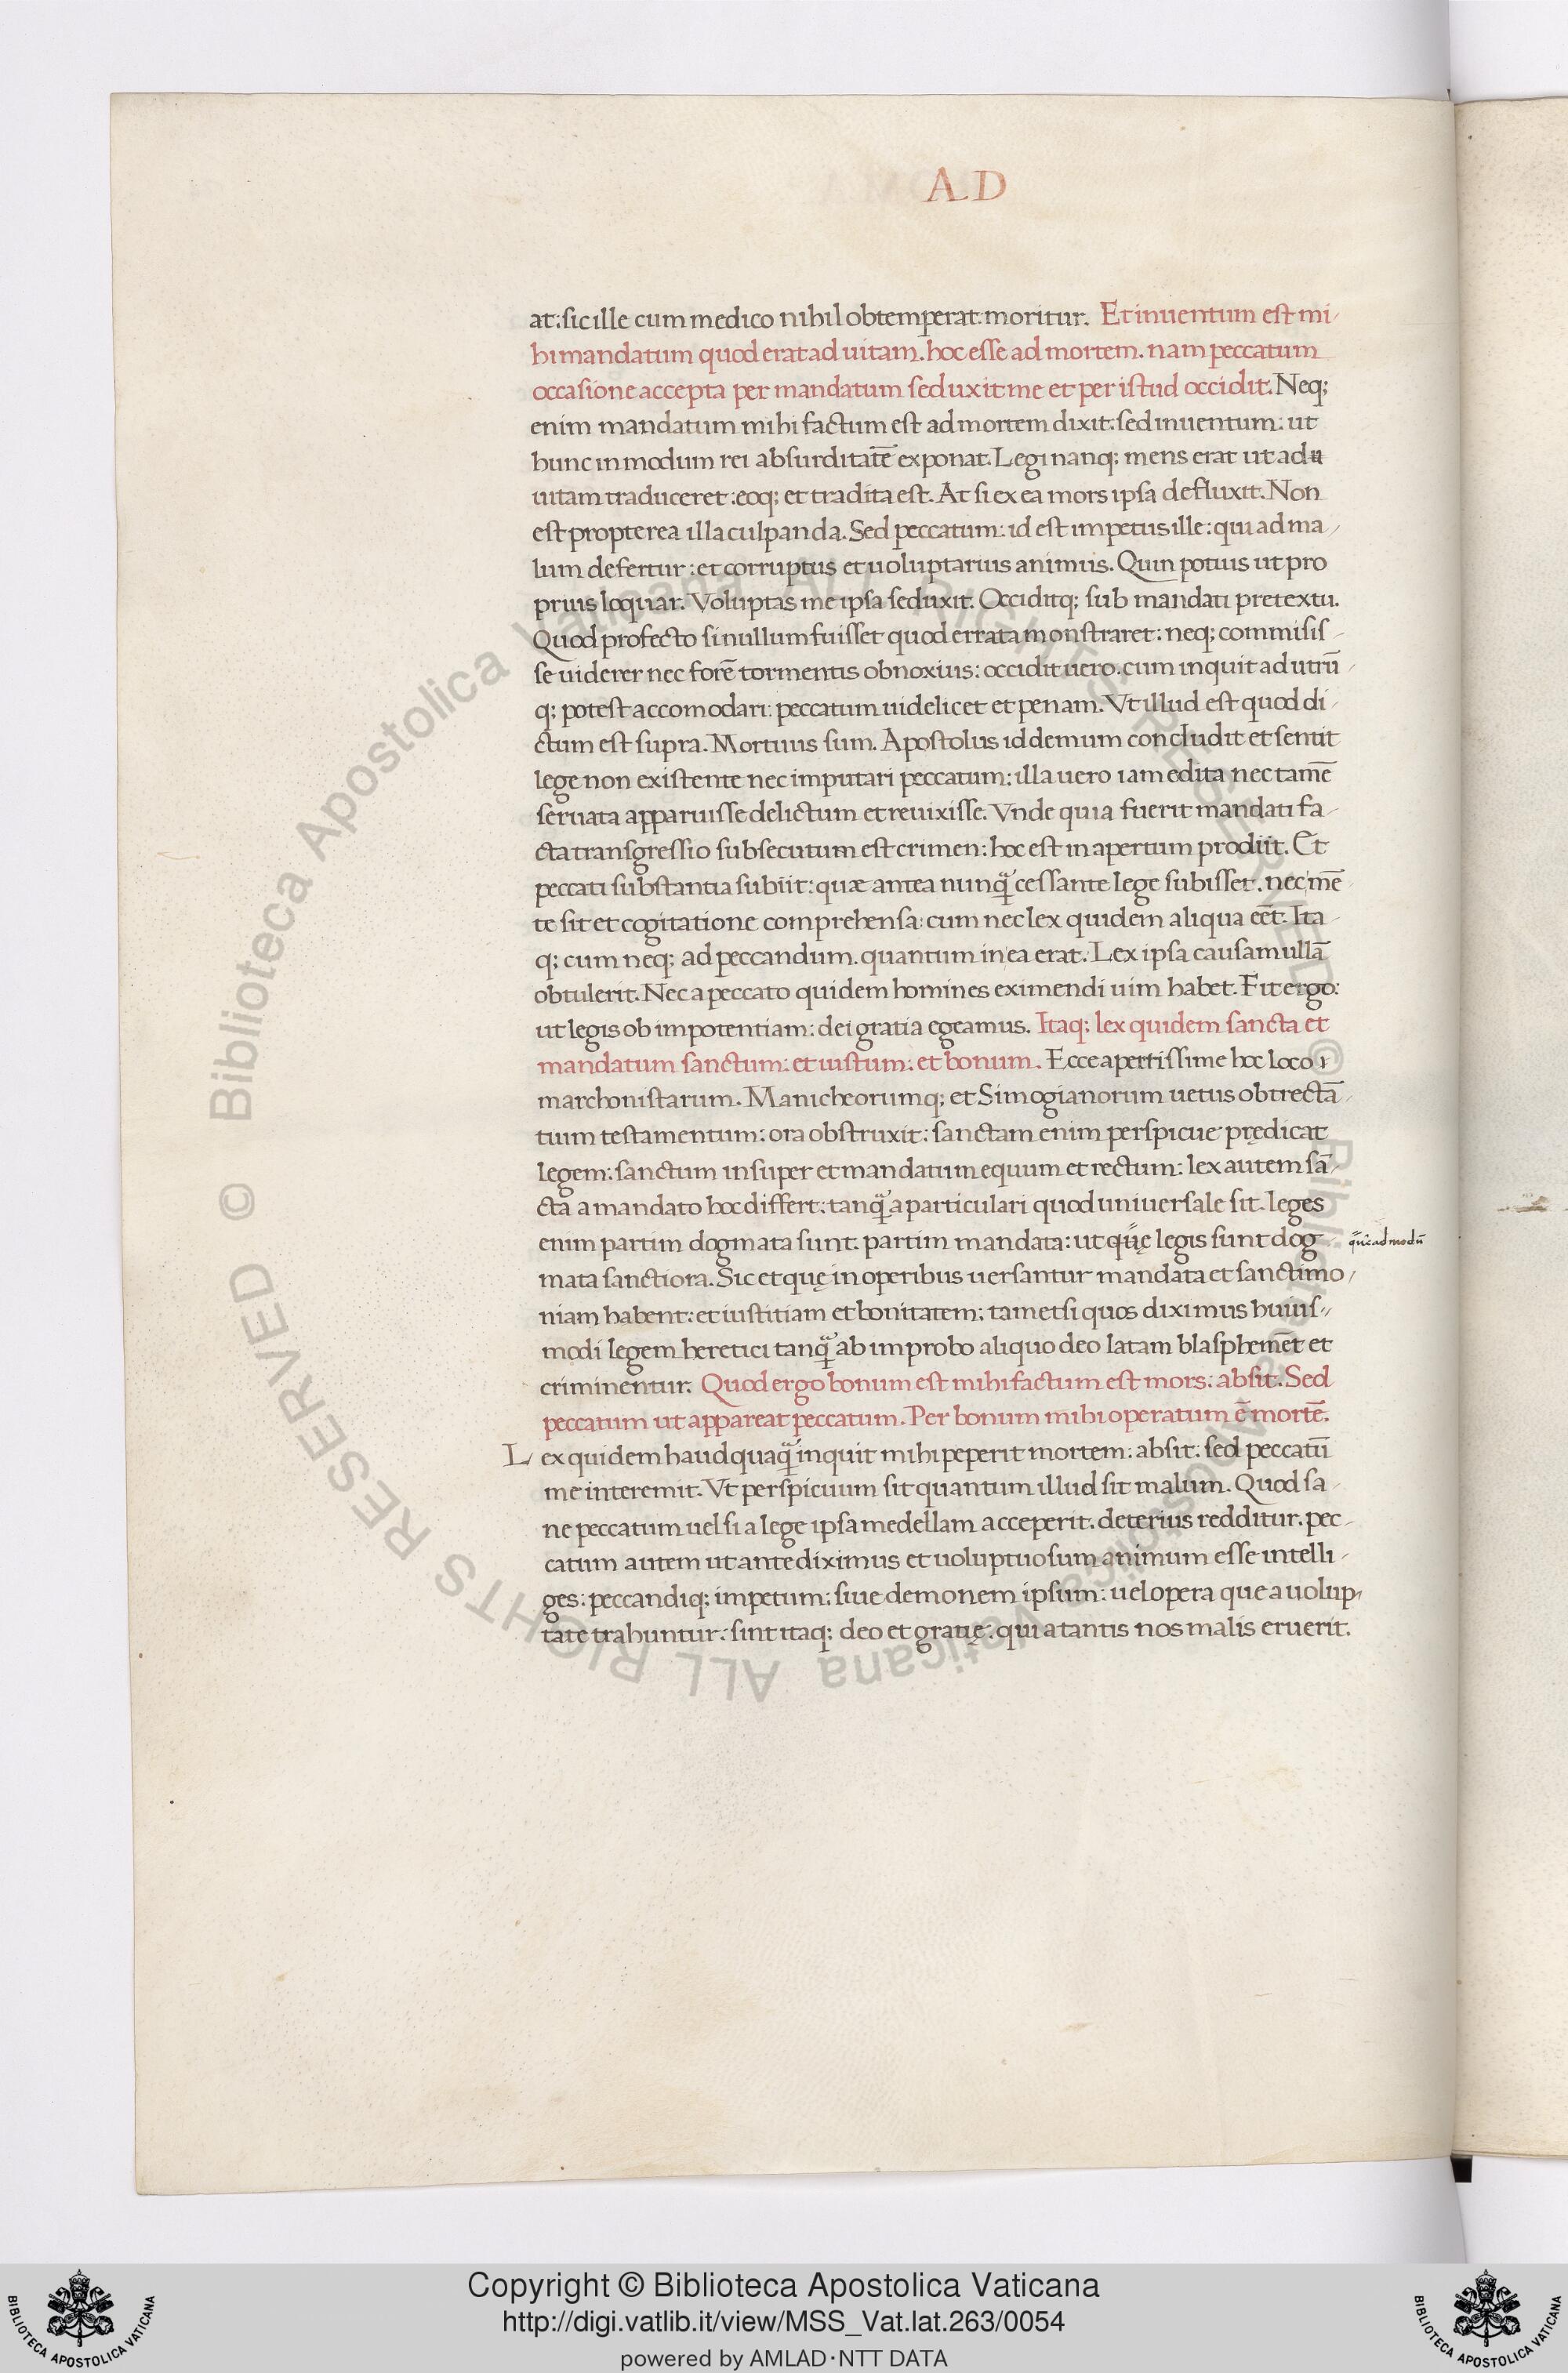 A.D
at: sic ille cum medico nihil obtemperat: moritur. Et inuentum est mi-
hi mandatum quod erat ad uitam. hoc esse ad mortem. nam peccatum
occasione accepta per mandatum seduxit me et per istud occidit. Neq;
enim mandatum mihi factum est ad mortem dixit: sed inuentum: ut
hunc in modum rei absurditatē exponat. Legi nanq; mens erat ut ad
uitam traduceret: eoq; et tradita est. At si ex ea mors ipsa defluxit. Non
est propterea illa culpanda. Sed peccatum: id est impetus ille: qui ad ma-
lum defertur: et corruptus et uoluptarius animus. Quin potius ut pro
prius loquar. Voluptas me ipsa seduxit. Occiditq; sub mandati pretextu.
Quod profecto si nullum fuisset quod errata monstraret: neq; commisis-
se uiderer nec forē tormentis obnoxius: occidit uero. cum inquit ad utrū-
q; potest accomodari: peccatum uidelicet et penam. Vt illud est quod di-
ctum est supra. Mortuus sum. Apostolus id demum concludit et sentit
lege non existente nec imputari peccatum: illa uero iam edita nec tamē
seruata apparuisse delictum et reuixisse. Vnde quia fuerit mandati fa-
cta transgressio subsecutum est crimen: hoc est in apertum prodiit. Et
peccati substantia subiit: quæ antea nunq̄ cessante lege subisset. nec mē
te sit et cogitatione comprehensa: cum nec lex quidem aliqua eēt. Ita-
q; cum neq; ad peccandum. quantum in ea erat. Lex ipsa causam ullā
obtulerit. Nec a peccato quidem homines eximendi uim habet. Fit ergo:
ut legis ob impotentiam: dei gratia egeamus. Itaq; lex quidem sancta et
mandatum sanctum: et iustum: et bonum. Ecce apertissime hoc loco
marchonistarum. Manicheorumq; et Simogianorum uetus obtrectā-
tium testamentum: ora obstruxit: sanctam enim perspicue prędicat
legem: sanctum insuper et mandatum equum et rectum: lex autem sā-
cta a mandato hoc differt: tanq̄ a particulari quod uniuersale sit. leges
enim partim dogmata sunt: partim mandata: ut quę legis sunt dog
mata sanctiora. Sic et quę in operibus uersantur mandata et sanctimo-
niam habent: et iustitiam et bonitatem: tametsi quos diximus huius-
modi legem heretici tanq̄ ab improbo aliquo deo latam blasphemēt et
criminentur. Quod ergo bonum est mihi factum est mors: absit. Sed
peccatum ut appareat peccatum. Per bonum mihi operatum ē mortē.
Lex quidem haudquaq̄ inquit mihi peperit mortem: absit: sed peccatū
me interemit. Vt perspicuum sit quantum illud sit malum. Quod sa-
ne peccatum uel si a lege ipsa medellam acceperit. deterius redditur. pec-
catum autem ut ante diximus et uoluptuosum animum esse intelli-
ges: peccandiq; impetum: siue demonem ipsum: uel opera que a uolup-
tate trahuntur: sint itaq; deo et gratię: qui a tantis nos malis eruerit.
© Biblioteca Apostolica Vaticana ALL RIGHTS RESERVED
© Biblioteca Apostolica Vaticana ALL RIGHTS RESERVED
Copyright © Biblioteca Apostolica Vaticana
http://digi.vatlib.it/view/MSS_Vat.lat.263/0054
powered by AMLAD·NTT DATA
BIBLIOTECA APOSTOLICA VATICANA
BIBLIOTECA APOSTOLICA VATICANA